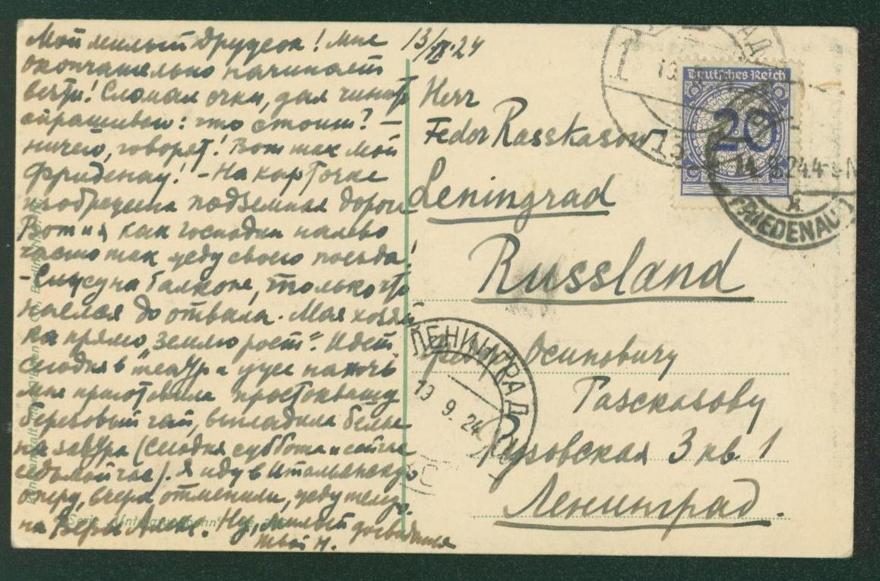 Мой милый дружок! Мне
окончательно начинает
везти! Сломал очки, дал чинить
спрашиваю: что стоит? –
ничего, говорят! Вот так мой
Фриденау! – На карточке
изображена подземная дорога
Вот и я как господин налево
часто так жду своего поезда!
– Сижу на балконе, только что
наелся до отвала. Моя хозяй
ка прямо „землю роет". Идет
сегодня в театр и уже на ночь
мне приготовила простоквашу
чай, выгладила белье
на завтра (Сегодня суббота и сейчас
седьмой час). Я иду в Итальянскую
оперу, вчера отменили, жду
на Веры Алек. Ну, милый, досвиданья
твой Н.
13/IX 24
Herr
Fedor Rasskasow
Leningrad
Russland
Осиповичу
Разсказову
3 кв. 1
Ленинград.
Deutsches Reich
20
14. 9.24. 4-5 N
FRIEDENAU 1
ЛЕНИНГРАД
19 9. 24